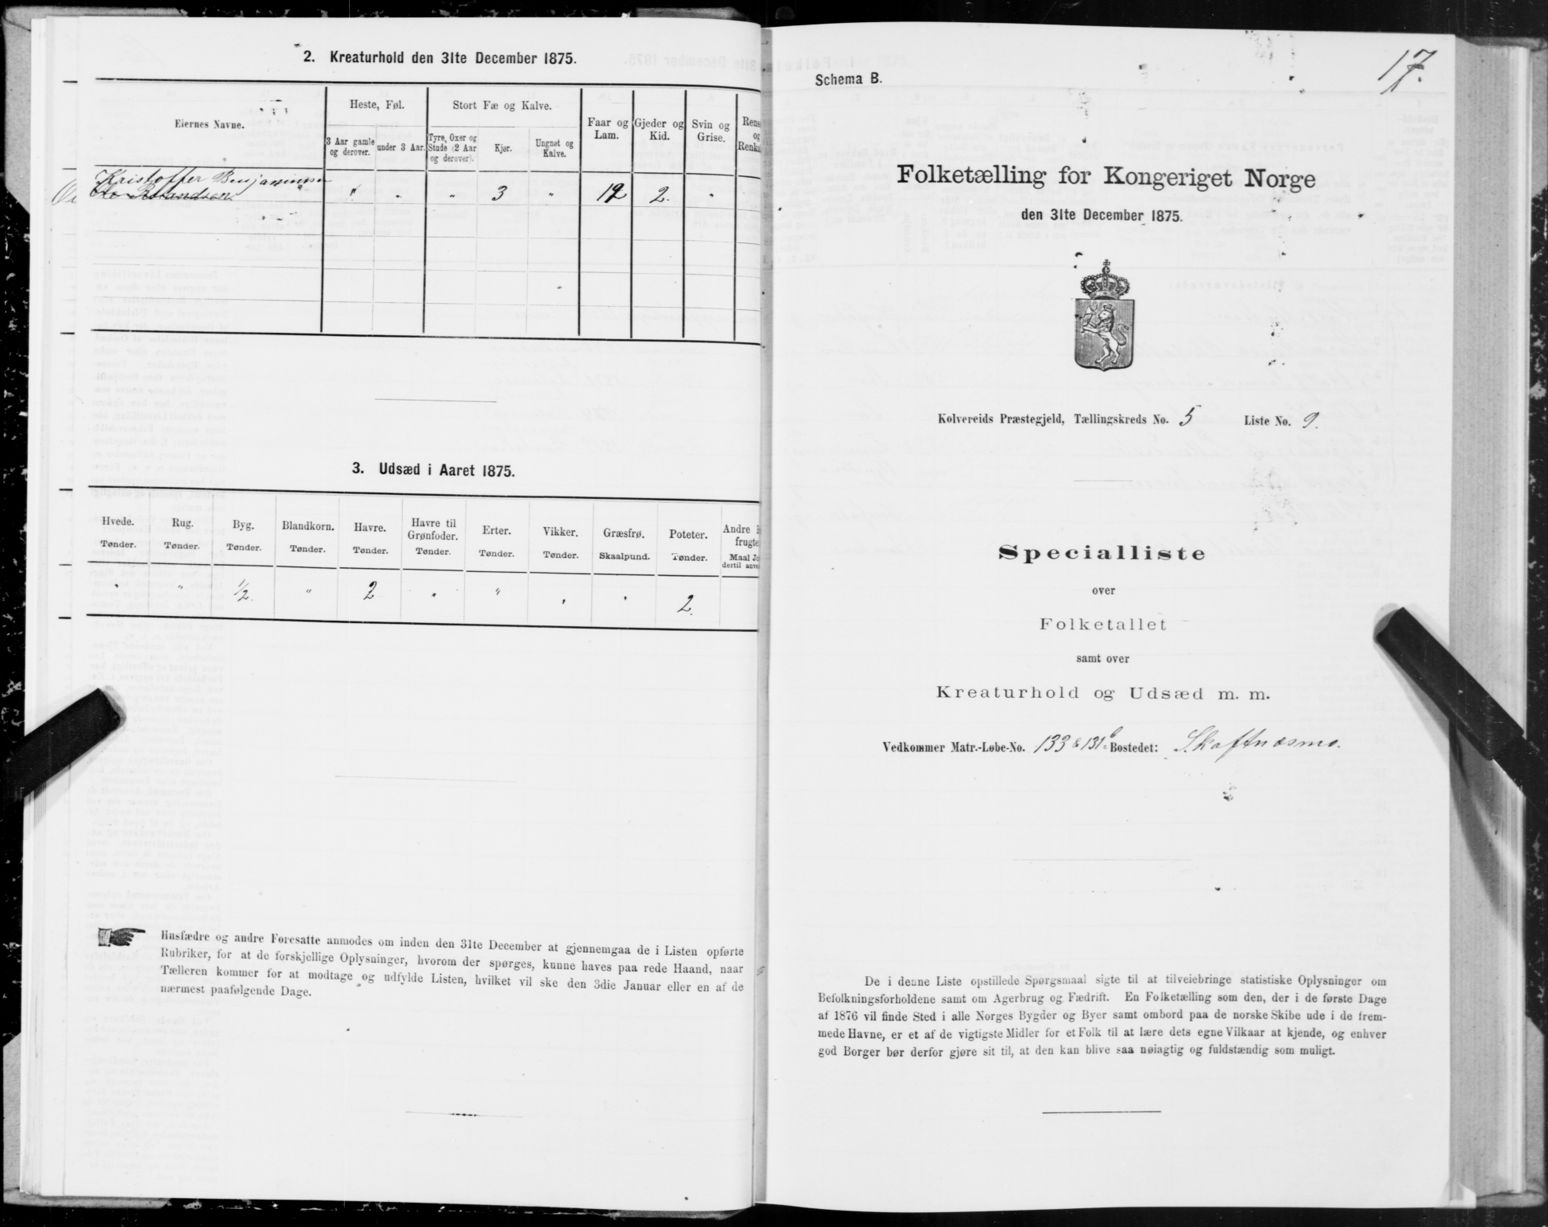 2. Kreaturhold den 31te December 1875.
Eiernes Navne.
Heste, Føl.
Stort Fæ og Kalve.
3 Aar gamle og derover.
under 3 Aar.
Tyre, Oxer og Stude (2 Aar og derover).
Kjør.
Ungnøt og Kalve.
Faar og Lam.
Gjeder og Kid.
Svin og Grise.
Kristoffer Benjaminsen
" " " 3 " 12 2. "
3. Udsæd i Aaret 1875.
Hvede. Rug. Byg. Blandkorn. Havre. Havre til Grønfoder. Erter. Vikker. Græsfrø. Poteter. Andre
Tønder. Tønder. Tønder. Tønder. Tønder. Tønder. Tønder. Tønder. Skaalpund. Tønder.
" " ½. " 2 " " " " 2.
Husfædre og andre Foresatte anmodes om inden den 31te December at gjennemgaa de i Listen opførte
Rubriker, for at de forskjellige Oplysninger, hvorom der spørges, kunne haves paa rede Haand, naar
Tælleren kommer for at modtage og udfylde Listen, hvilket vil ske den 3die Januar eller en af de
nærmest paafølgende Dage.
17.
Schema B.
Folketælling for Kongeriget Norge
den 31te December 1875.
Kolvereids Præstegjeld, Tællingskreds No. 5 Liste No. 9.
Specialliste
over
Folketallet
samt over
Kreaturhold og Udsæd m. m.
Vedkommer Matr.-Løbe-No. 133 & 131b Bostedet: Skaftnæsmo.
De i denne Liste opstillede Spørgsmaal sigte til at tilveiebringe statistiske Oplysninger om
Befolkningsforholdene samt om Agerbrug og Fædrift. En Folketælling som den, der i de første Dage
af 1876 vil finde Sted i alle Norges Bygder og Byer samt ombord paa de norske Skibe ude i de frem-
mede Havne, er et af de vigtigste Midler for et Folk til at lære dets egne Vilkaar at kjende, og enhver
god Borger bør derfor gjøre sit til, at den kan blive saa nøiagtig og fuldstændig som muligt.